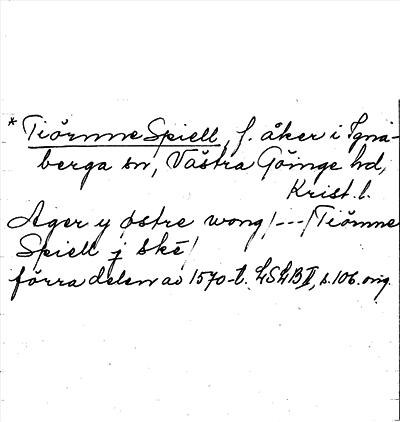 * Tiörnne Spiell, f. åker i Igna-
berga sn, Västra Göinge hd,
Krist. l.
Ager y östre wong /---/ Tiörnne
Spiell j ske/
förra delen av 1570-t. LSLB II, s. 106. orig.